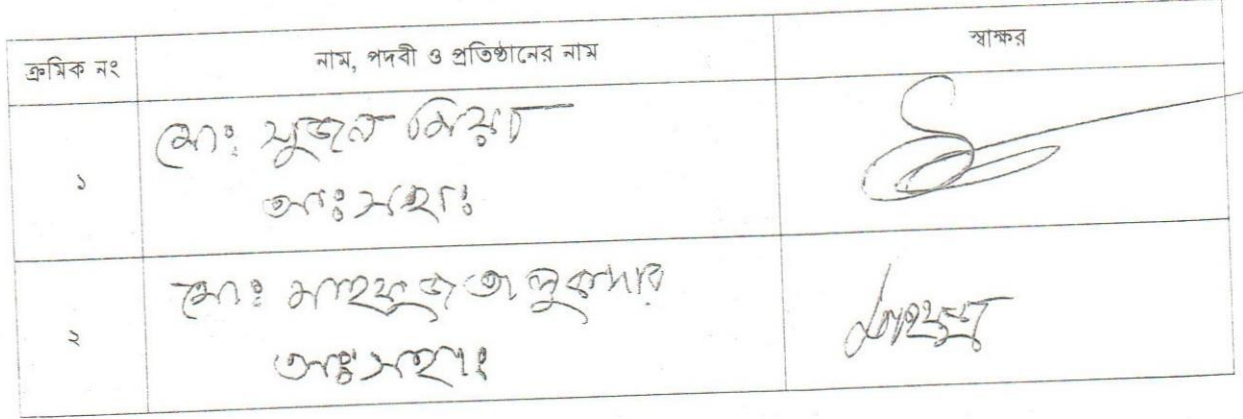 ক্রমিক নং নাম, পদবী ও প্রতিষ্ঠানের নাম স্বাক্ষর
১ মোঃ সুজন মিয়া
অঃ সহাঃ
২ মোঃ মাহফুজ তালুকদার মাহফুজ
অঃ সহাঃ